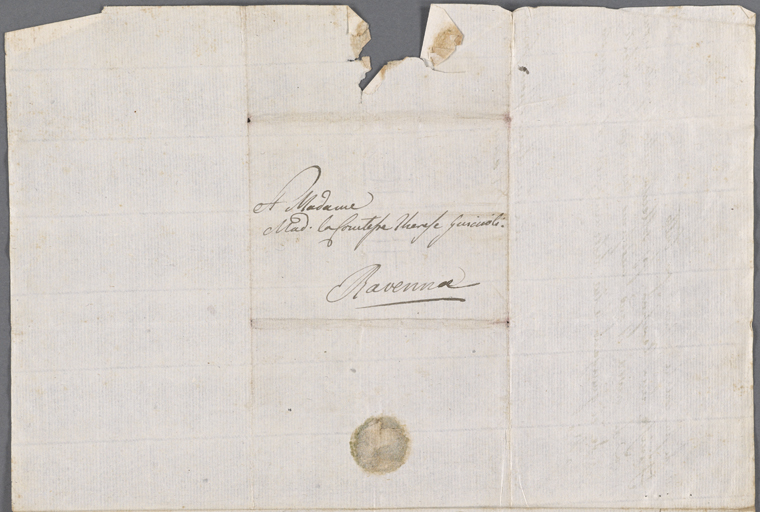 A Madame
Mad. la Comtesse Therese Guiccioli.
Ravenna